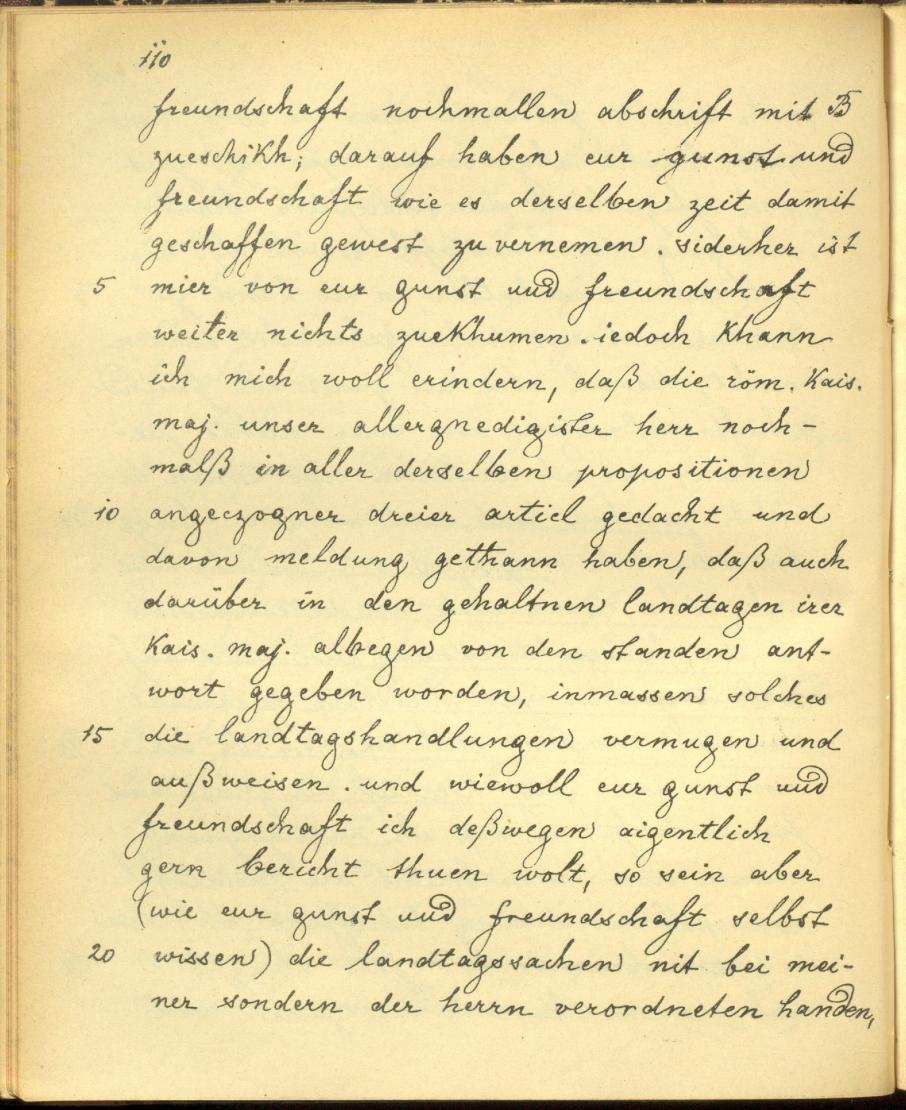 110
freundschaft nochmallen abschrift mit B
zueschikh; darauf haben eur gunst und
freundschaft wie es derselben zeit damit
geschaffen gewest zu vernemen. siderher ist
5 mier von eur gunst und freundschaft
weiter nichts zuekhumen. iedoch khann
ich mich woll erindern, daß die röm. kais.
maj. unser allergnedigister herr noch-
malß in aller derselben propositionen
10 angeczogner dreier articl gedacht und
davon meldung gethann haben, daß auch
darüber in den gehaltnen landtagen irer
kais. maj. albegen von den standen ant-
wort gegeben worden, inmassen solches
15 die landtagshandlungen vermugen und
außweisen. und wiewoll eur gunst und
freundschaft ich deßwegen aigentlich
gern bericht thuen wolt, so sein aber
(wie eur gunst und freundschaft selbst
20 wissen) die landtagssachen nit bei mei-
ner sondern der herrn verordneten handen,